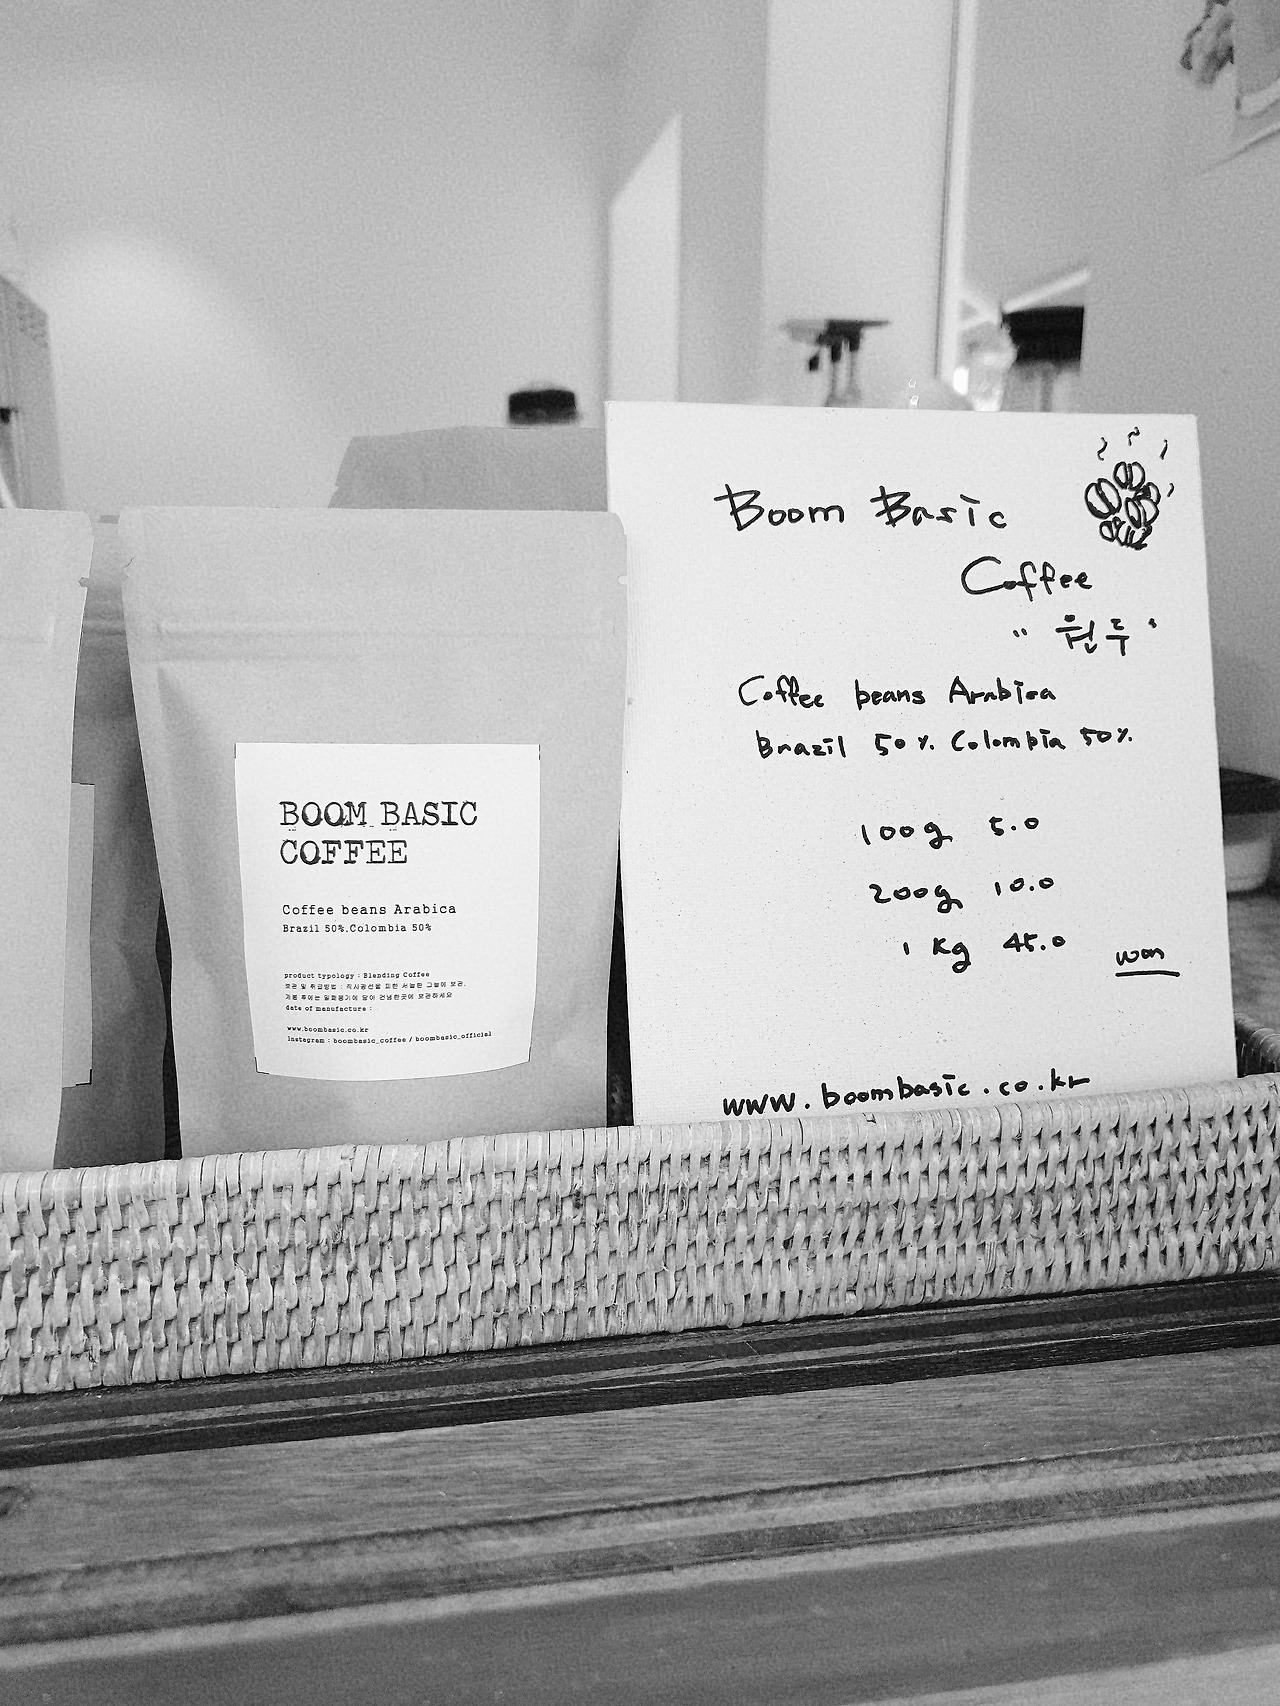 BOOM BASIC
COFFEE
Coffee beans Arabica
Brazil 50%.Colombia 50%
product typology : Blending Coffee
보관 및 취급방법 : 직사광선을 피한 서늘한 그늘에 보관.
개봉 후에는 밀폐용기에 담아 건냉한곳에 보관하세요
date of manufacture :
www.boombasic.co.kr
Instagram : boombasic_coffee / boombasic_official
Boom Basic
Coffee
"원두"
Coffee beans Arabica
Brazil 50%. Colombia 50%.
100g 5.0
200g 10.0
1 Kg 45.0
won
www.boombasic.co.kr